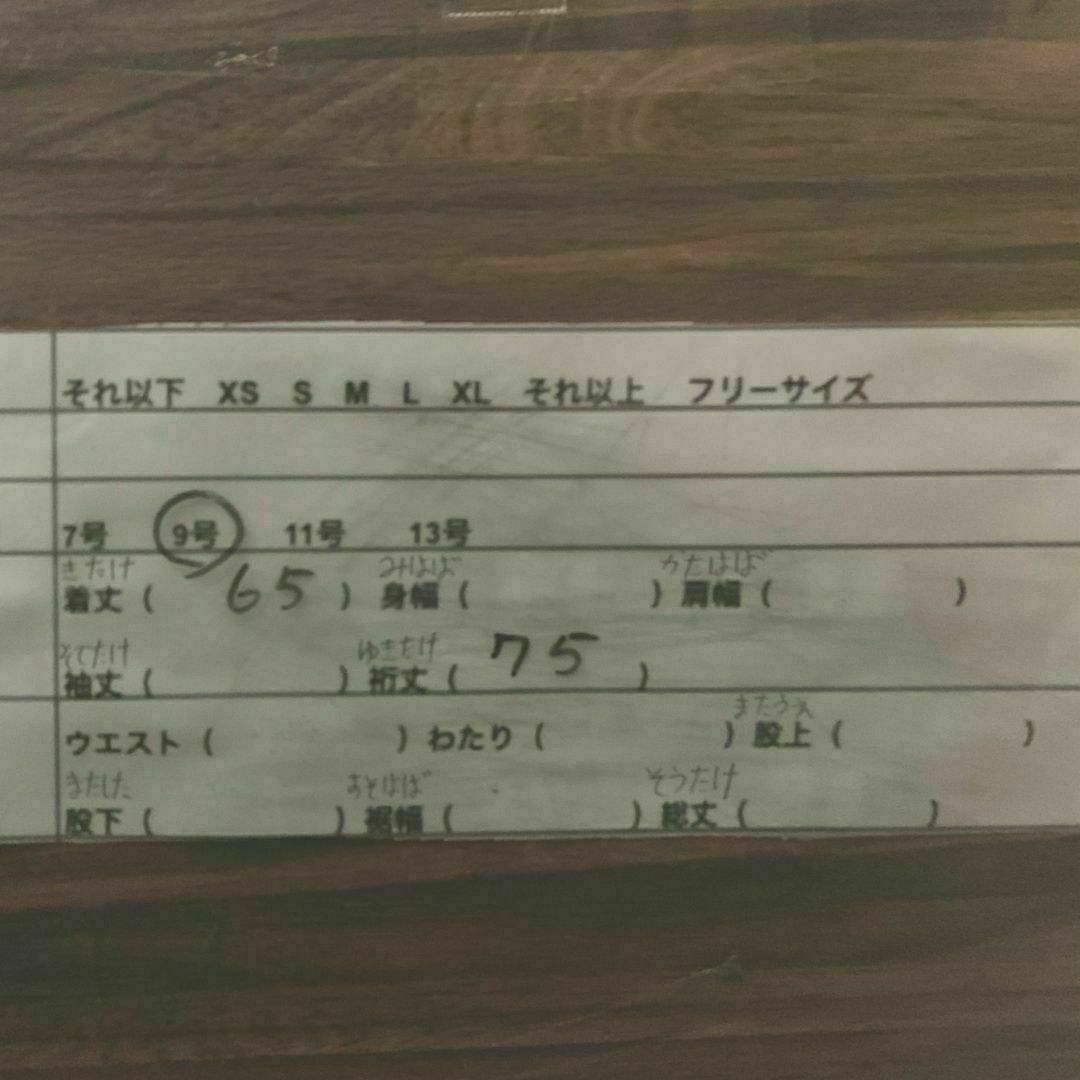 それ以下 XS S M L XL それ以上 フリーサイズ
7号 9号 11号 13号
きたけ みはば かたはば
着丈 ( 65 ) 身幅 ( ) 肩幅 ( )
そでたけ ゆきたけ
袖丈 ( ) 裄丈 ( 75 )
またうえ
ウエスト ( ) わたり ( ) 股上 ( )
またした すそはば そうたけ
股下 ( ) 裾幅 ( ) 総丈 ( )